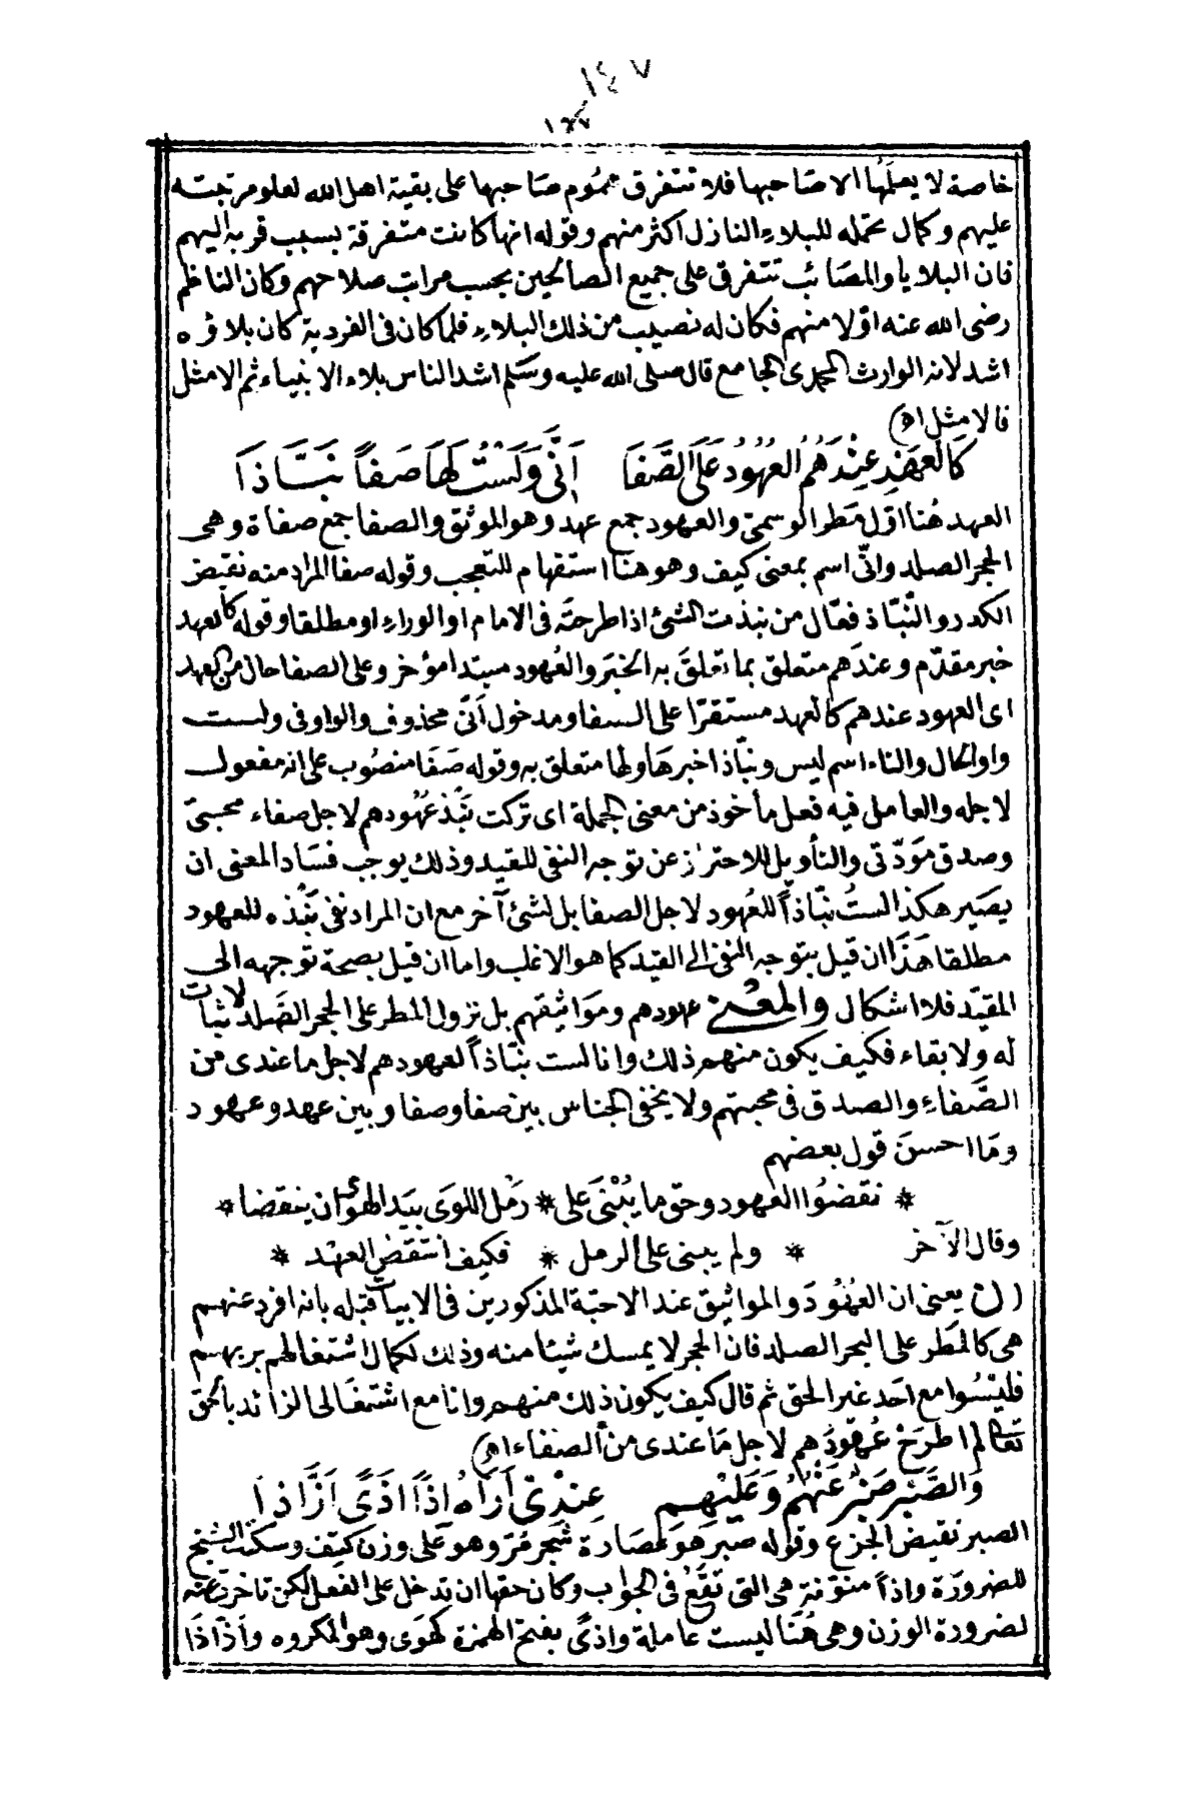 ١٤٧
١٤٧
خاصة لا يعلمها الا صاحبها فلا تتفرق هموم صاحبها على بقية اهل الله لعلو مرتبته
عليهم وكمال تحمله للبلاءِ النازل اكثر منهم وقوله انها كانت متفرقة بسبب قربه اليهم
فان البلايا والمصَائب تتفرق على جميع الصالحين بحسب مراتب صلاحهم وكان الناظم
رضى الله عنه اوّلا منهم فكان له نصيب من ذلك البلاءِ فلما كان فى الفردية كان بلاؤه
اشد لانه الوارث المحمدى الجامع قال صلى الله عليه وسَلم اشد الناس بلاء الانبياء ثم الامثل
فالامثل اه)
كَالعَهْدِ عِنْدَهُمُ العُهُودُ عَلَى الصَّفَا اَنَّى وَلَسْتُ لَهَا صَفاً نَبَّاذَا
العهد هُنا اوّل مَطر الوسمىّ والعهود جمع عهد وهو الموثق والصفا جمع صفاة وهى
الحجر الصلد وانّى اسم بمعنى كيف وهو هنا استفهام للتعجب وقوله صفا المراد منه نقيض
الكدر والنّبّاذ فعّال من نبذت الشئ اذا طرحته فى الامام او الوراءِ او مطلقا وقوله كالعهد
خبر مقدّم وعندَهم متعلق بما تعلقَ به الخبَر والعُهود مبتدا مؤخر وعلى الصفا حال من العهد
اى العهود عندهم كالعهد مستقرّا على الصفا ومدخول اَنّى محذوف والواو فى ولست
واو الحال والتاء اسم ليس ونبّاذا خبرهَا ولها متعلق به وقوله صَفَا منصُوب على انه مفعول
لاجله والعامل فيه فعل مأخوذ من معنى الجملة اى تركت نَبْذ عُهُودهم لاجل صفاء محبتىّ
وصدق مَوَدّتى والتأويل للاحتراز عن توجه النفى للقيد وذلك يوجب فسَاد المعنى ان
يصَير هكذا لستُ نبّاذاً للعُهود لاجل الصفا بل لشئ آخر مع ان المراد نفى نَبْذه للعهود
مطلقا هَذَا ان قيل بتوجه النفى الى القيد كما هو الاغلب واما ان قيل بصحة توجهه الى
المقيّد فلا اشكال والمعْنى عهودهم ومَوَاثيقهم بل نزول المطر على الحجر الصَّلد لا ثبات
له ولا بقاء فكيف يكون منهم ذلك وانا لست نبّاذاً لعهودهم لاجل ما عندى من
الصَّفاءِ والصدق فى محبتهم ولا يخفى الجناس بين صفا وصفا وبين عهد وعهود
ومَا احسنَ قول بعضهم
* نقضوُا العهود وحق ما يُبْنَى على * رَمْل اللوَى بيَد الهوى ان ينقضا *
وقال الآخر * ولم يبنى على الرمل * فكيف انتقضَ العهْد *
(ن يعنى ان العُهُودَ والمواثيق عند الاحبّة المذكورين فى الابيات قبله بانه افرد عنهم
هى كالمَطر على الحجر الصلد فان الحجر لا يمسك شيئا منه وذلك لكمال اشتغالهم بربهم
فليْسُوا مع احَد غير الحق ثم قال كيف يكون ذلك منهم وانا مع اشتغَالى الزائد بالحق
تعالى لم اطرَحْ عُهودَهم لاجل مَا عندى من الصَفاء اه)
وَالصَّبْر صَبْرٌ عَنْهُمُ وَعَلَيْهِم عِنْدِىْ أَرَاهُ اذاً اذَىً اَزَّاذَا
الصبر نقيض الجزع وقوله صبر هَو عصَارة شَجَر مُرّ وهو عَلى وزن كتِف وسكنت الشيخ
للضرورَة واذاً منوّنة هى التى تقَعُ فى الجواب وكان حقها ان تدخل على الفعل لكن تاخرت عنه
لضرورة الوزن وهى هُنَا ليست عاملة واذىً بفتح الهمزة كهَوَى وهو المكروه وازّاذَا